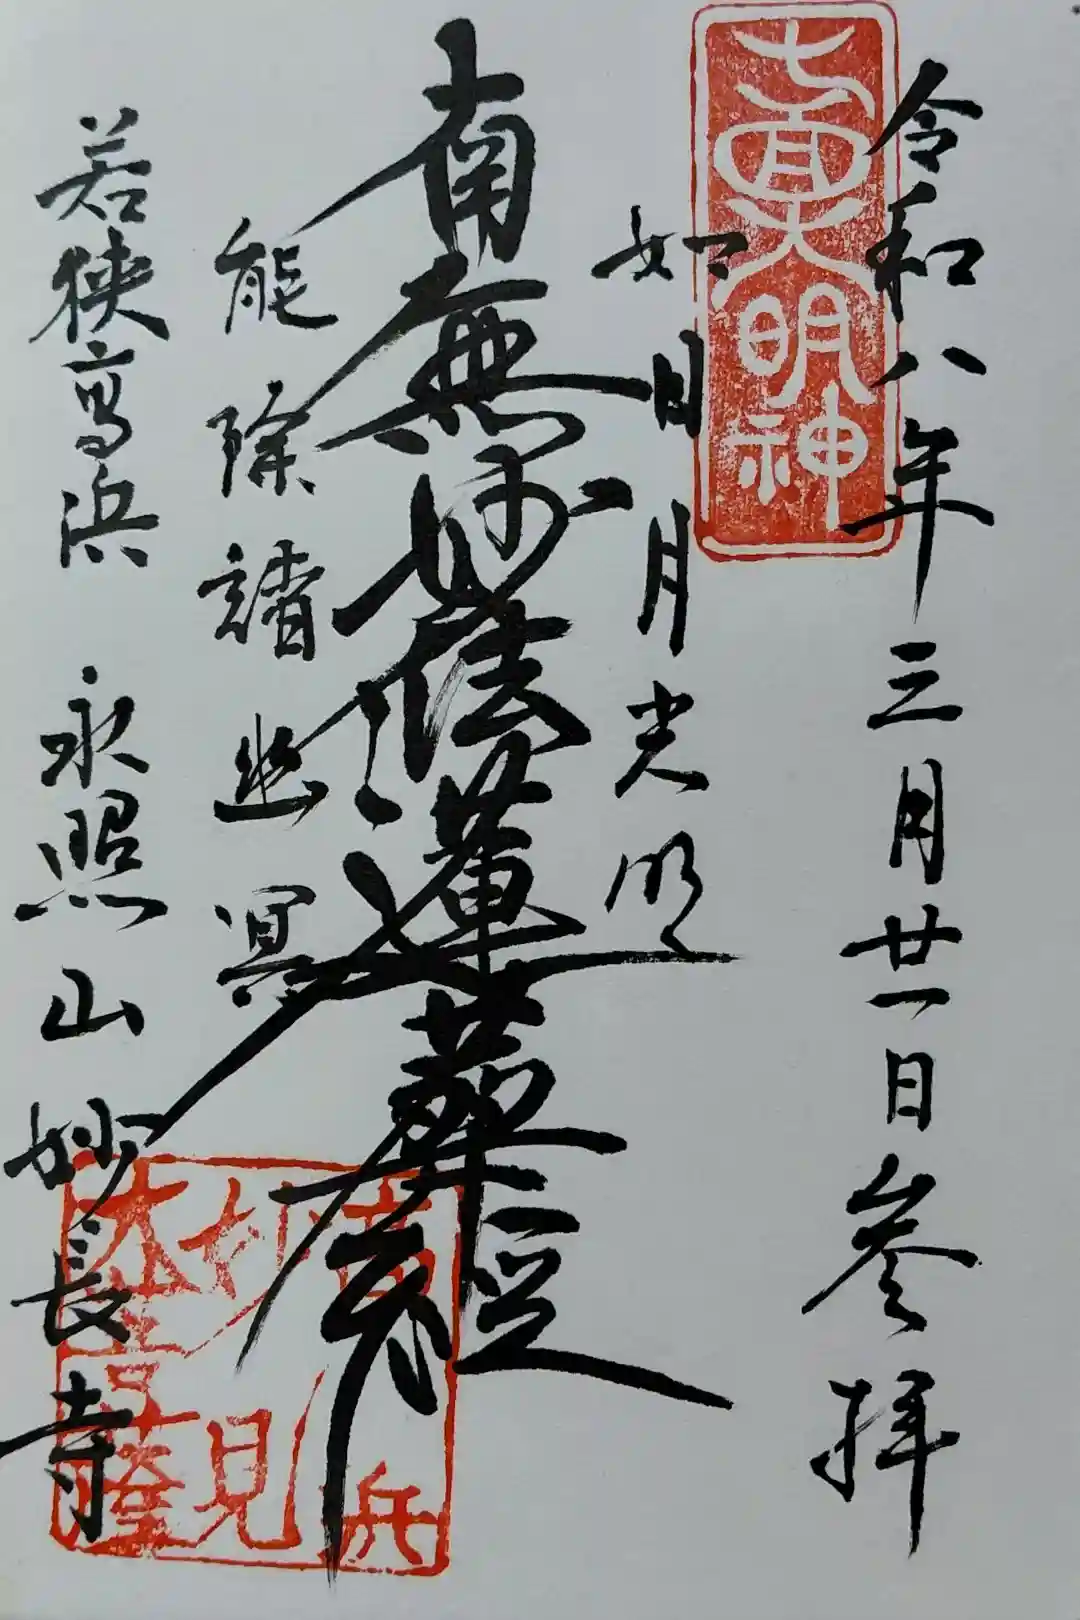 令和八年三月廿一日参拝
七面大明神
如日月光明
南無妙法蓮華經
能除諸幽冥
若狭高浜 永照山妙長寺
妙見